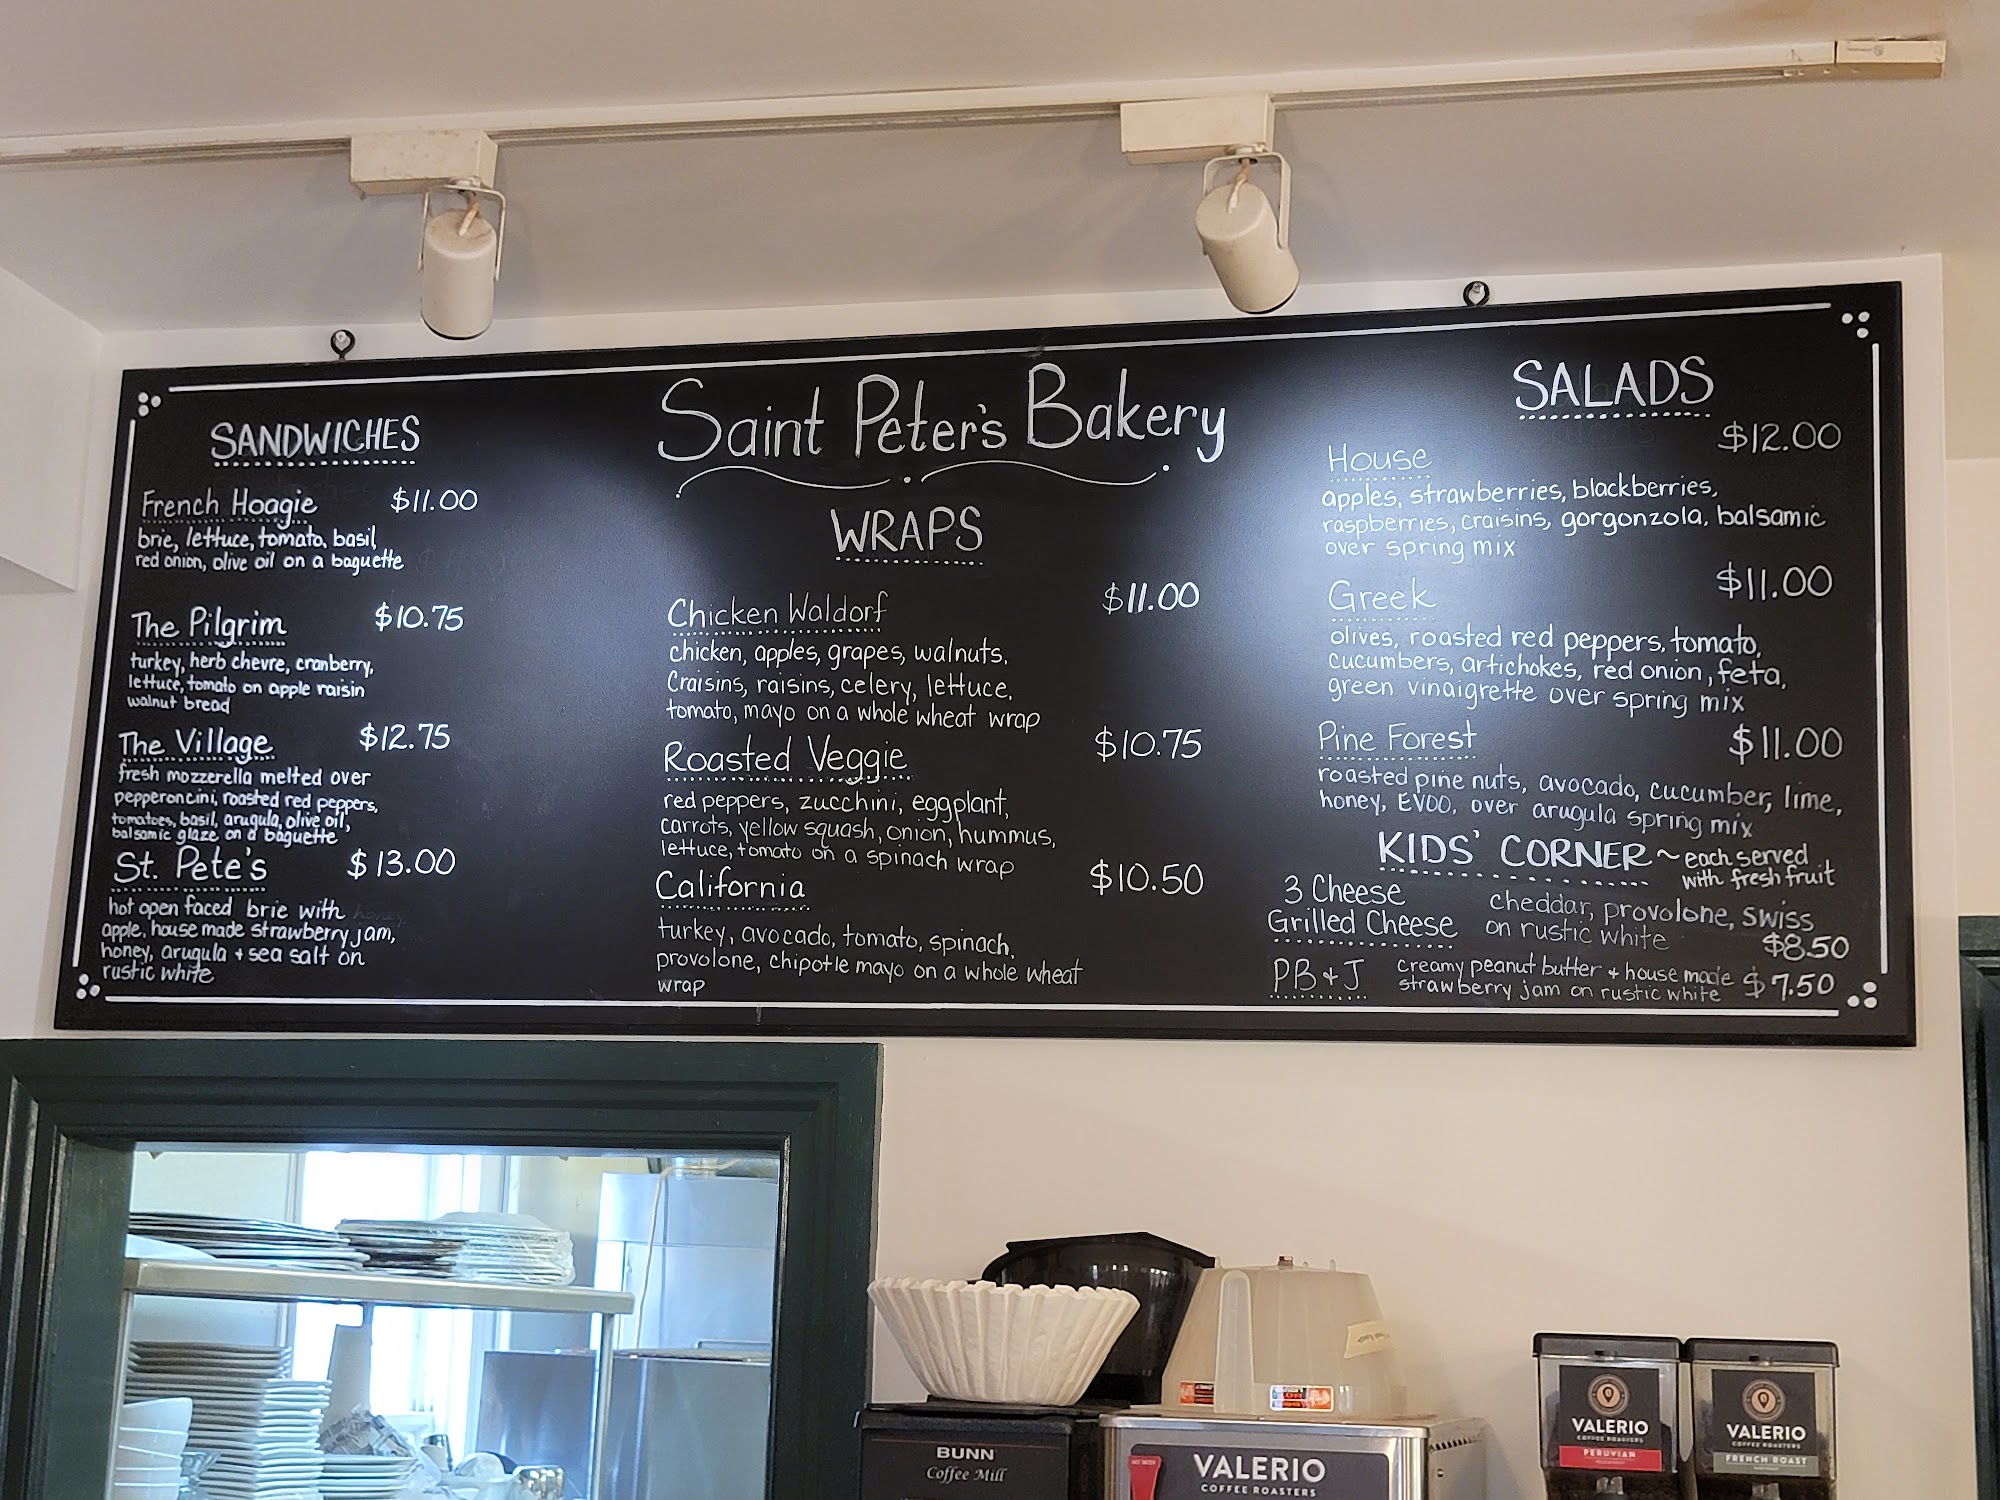 Saint Peter's Bakery
SANDWICHES
French Hoagie $11.00
brie, lettuce, tomato, basil,
red onion, olive oil on a baguette
The Pilgrim $10.75
turkey, herb chevre, cranberry,
lettuce, tomato on apple raisin
walnut bread
The Village $12.75
fresh mozzerella melted over
pepperoncini, roasted red peppers,
tomatoes, basil, arugula, olive oil,
balsamic glaze on a baguette
St. Pete's $13.00
hot open faced brie with honey,
apple, house made strawberry jam,
honey, arugula + sea salt on
rustic white
WRAPS
Chicken Waldorf $11.00
chicken, apples, grapes, walnuts,
Craisins, raisins, celery, lettuce,
tomato, mayo on a whole wheat wrap
Roasted Veggie $10.75
red peppers, zucchini, eggplant,
carrots, yellow squash, onion, hummus,
lettuce, tomato on a spinach wrap
California $10.50
turkey, avocado, tomato, spinach,
provolone, chipotle mayo on a whole wheat
wrap
SALADS
House $12.00
apples, strawberries, blackberries,
raspberries, craisins, gorgonzola, balsamic
over spring mix
Greek $11.00
olives, roasted red peppers, tomato,
cucumbers, artichokes, red onion, feta,
green vinaigrette over spring mix
Pine Forest $11.00
roasted pine nuts, avocado, cucumber, lime,
honey, EVOO, over arugula spring mix
KIDS' CORNER ~ each served
with fresh fruit
3 Cheese
Grilled Cheese
cheddar, provolone, swiss
on rustic white $8.50
PB + J
creamy peanut butter + house made
strawberry jam on rustic white $7.50
BUNN
Coffee Mill
VALERIO
COFFEE ROASTERS
VALERIO
COFFEE ROASTERS
PERUVIAN
VALERIO
COFFEE ROASTERS
FRENCH ROAST